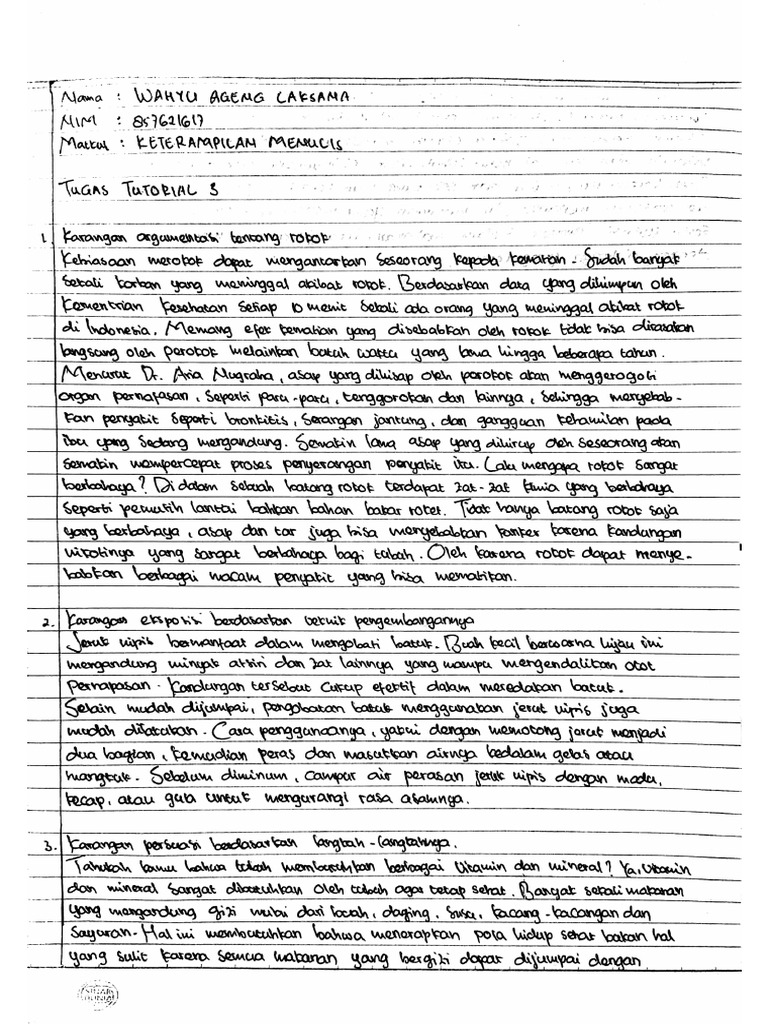 Nama : WAHYU AGENG LAKSANA
NIM : 857621617
Matkul : KETERAMPILAN MENULIS
TUGAS TUTORIAL 3
1. Karangan argumentasi tentang rokok
Kebiasaan merokok dapat mengantarkan seseorang kepada kematian. Sudah banyak
sekali korban yang meninggal akibat rokok. Berdasarkan data yang dihimpun oleh
Kementrian Kesehatan setiap 10 menit sekali ada orang yang meninggal akibat rokok
di Indonesia. Memang efek kematian yang disebabkan oleh rokok tidak bisa dirasakan
langsung oleh perokok melainkan butuh waktu yang lama hingga beberapa tahun.
Menurut Dr. Aria Nugraha, asap yang dihisap oleh perokok akan menggerogoti
organ pernafasan, seperti paru-paru, tenggorokan dan lainnya, sehingga menyebab-
kan penyakit seperti bronkitis, serangan jantung, dan gangguan kehamilan pada
ibu yang sedang mengandung. Semakin lama asap yang dihirup oleh seseorang akan
semakin mempercepat proses penyerangan penyakit itu. Lalu mengapa rokok sangat
berbahaya? Di dalam sebuah batang rokok terdapat zat-zat kimia yang berbahaya
seperti pemutih lantai bahkan bahan bakar roket. Tidak hanya batang rokok saja
yang berbahaya, asap dan tar juga bisa menyebabkan kanker karena kandungan
nikotinya yang sangat berbahaya bagi tubuh. Oleh karena rokok dapat menye-
babkan berbagai macam penyakit yang bisa mematikan.
2. Karangan eksposisi berdasarkan teknik pengembangannya
Jeruk nipis bermanfaat dalam mengobati batuk. Buah kecil berwarna hijau ini
mengandung minyak atsiri dan zat lainnya yang mampu mengendalikan otot
pernapasan. Kandungan tersebut cukup efektif dalam meredakan batuk.
Selain mudah dijumpai, pengobatan batuk menggunakan jeruk nipis juga
mudah dilakukan. Cara penggunaanya, yakni dengan memotong jeruk menjadi
dua bagian, kemudian peras dan masukkan airnya kedalam gelas atau
mangkuk. Sebelum diminum, campur air perasan jeruk nipis dengan madu,
kecap, atau gula untuk mengurangi rasa asamnya.
3. Karangan persuasi berdasarkan langkah-langkahnya.
Tahukah kamu bahwa tubuh membutuhkan berbagai vitamin dan mineral? Ya, vitamin
dan mineral sangat dibutuhkan oleh tubuh agar tetap sehat. Banyak sekali makanan
yang mengandung gizi mulai dari buah, daging, susu, kacang-kacangan dan
sayuran. Hal ini membutuhkan bahwa menerapkan pola hidup sehat bukan hal
yang sulit karena semua makanan yang bergizi dapat dijumpai dengan
SINAR DUNIA